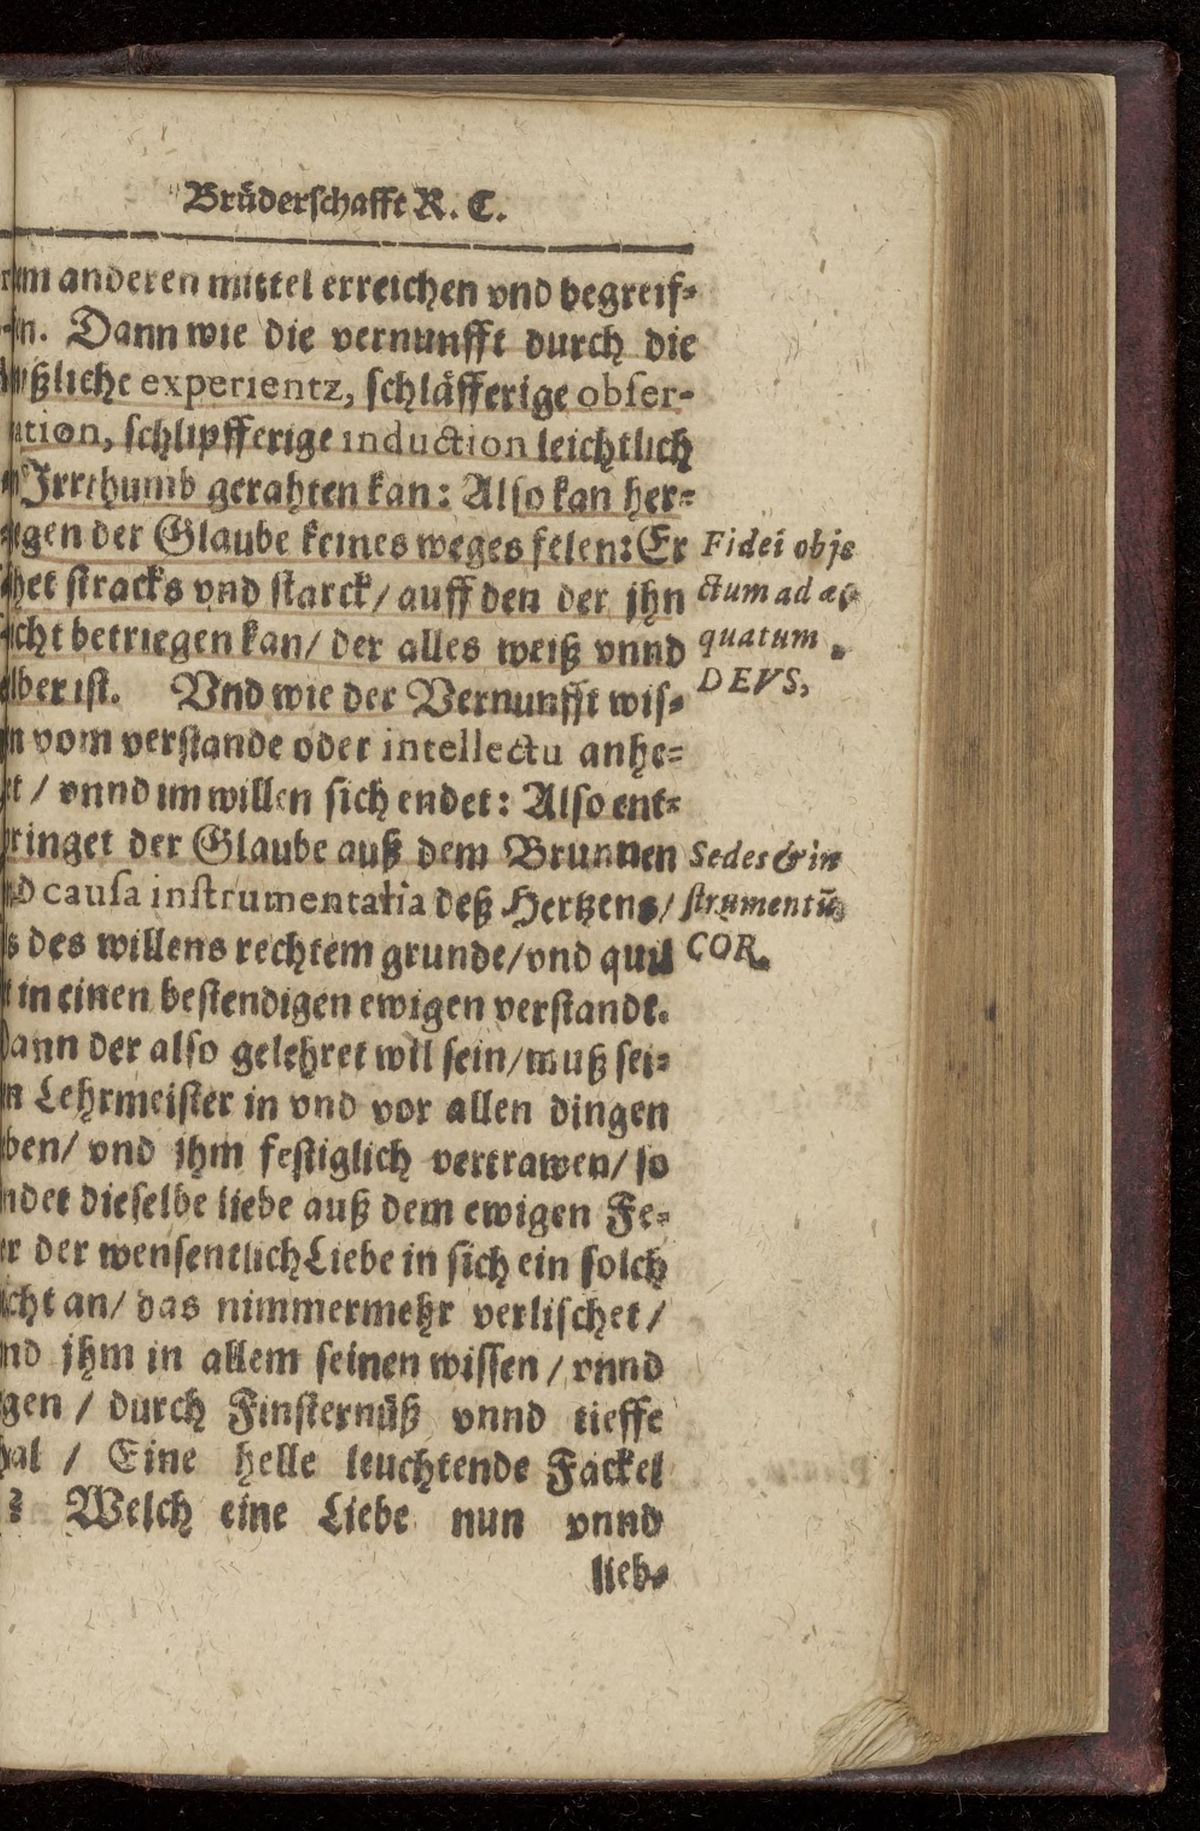 Brüderschafft R. C.
anderen mittel erreichen vnd begreif-
Dann wie die vernunfft durch die
experientz, schläfferige obser-
ation, schlipfferige induction leichtlich
Irrthumb gerahten kan: Also kan her-
gen der Glaube keines weges felen: Er
het stracks vnd starck / auff den der jhn
icht betriegen kan / der alles weiß vnnd
lber ist. Vnd wie der Vernunfft wis-
n vom verstande oder intellectu anhe-
et / vnnd im willen sich endet: Also ent-
ringet der Glaube auß dem Brunnen
causa instrumentalia deß Hertzens /
s des willens rechtem grunde / vnd quil
t in einen bestendigen ewigen verstandt.
Dann der also gelehret wil sein / muß sei-
n Lehrmeister in vnd vor allen dingen
ben / vnd jhm festiglich vertrawen / so
ndet dieselbe liebe auß dem ewigen Fe-
er der wensentlich Liebe in sich ein solch
icht an / das nimmermehr verlischet /
nd jhm in allem seinen wissen / vnnd
gen / durch Finsternüß vnnd tieffe
hal / Eine helle leuchtende Fackel
? Welch eine Liebe nun vnnd
lieb-
Fidei obje
ctum ad æ-
quatum
DEVS,
Sedes & in
strumentũ
COR.